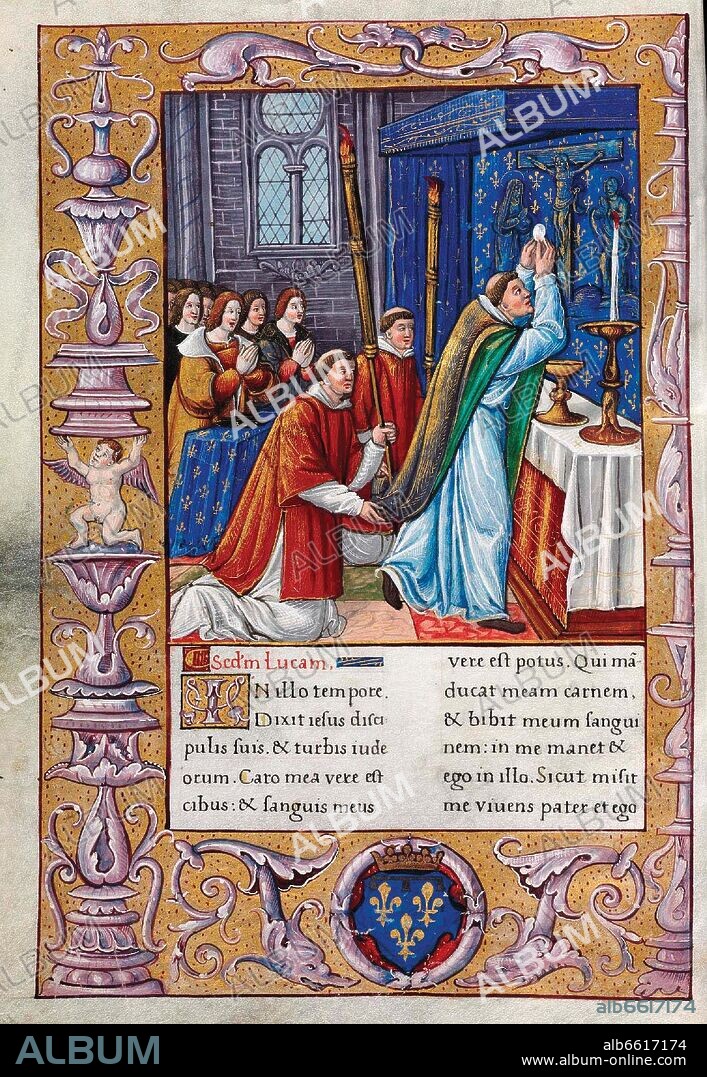 Scd'm Lucam,
IN illo tempore.
Dixit iesus disci
pulis suis. & turbis iude
orum. Caro mea vere est
cibus: & sanguis meus
vere est potus. Qui mā-
ducat meam carnem,
& bibit meum sangui
nem: in me manet &
ego in illo. Sicut misit
me viuens pater et ego
alb6617174
ALBUM
alb6617174
album-online.com